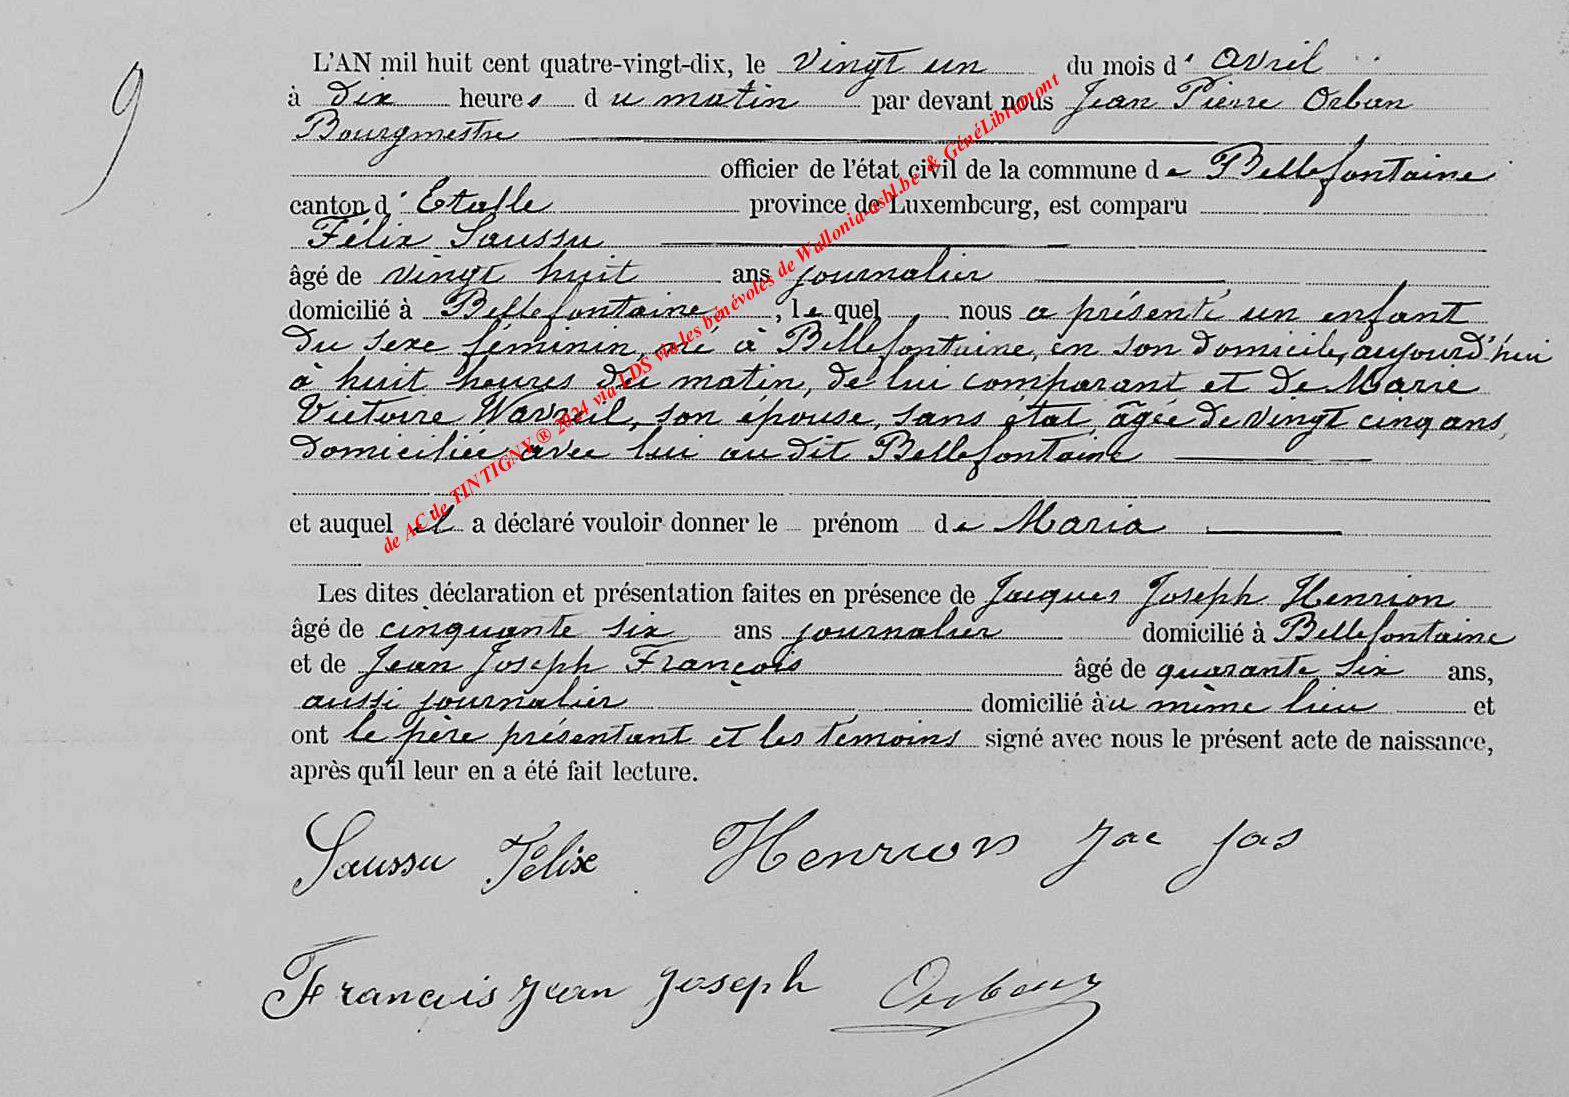 9
L'AN mil huit cent quatre-vingt-dix, le vingt un du mois d'avril
à dix heures du matin par devant nous Jean Pierre Orban
Bourgmestre
officier de l'état civil de la commune de Bellefontaine
canton d'Etalle province de Luxembourg, est comparu
Félix Saussu
âgé de vingt huit ans journalier
domicilié à Bellefontaine, lequel nous a présenté un enfant
du sexe féminin, né à Bellefontaine, en son domicile, aujourd'hui
à huit heures du matin, de lui comparant et de Marie
Victoire son épouse, sans état, âgée de vingt cinq ans,
domiciliée avec lui au dit Bellefontaine
et auquel il a déclaré vouloir donner le prénom de Maria
Les dites déclaration et présentation faites en présence de Jacques Joseph Henrion
âgé de cinquante six ans journalier domicilié à Bellefontaine
et de Jean Joseph François âgé de quarante six ans,
aussi journalier domicilié au même lieu et
ont le père présentant et les témoins signé avec nous le présent acte de naissance,
après qu'il leur en a été fait lecture.
Saussu Félix Henrion Jac Jos
François Jean Joseph Orban
de AC de TINTIGNY ® 2024 via LDS via les bénévoles de Wallonia-asbl.be & GénéLibramont